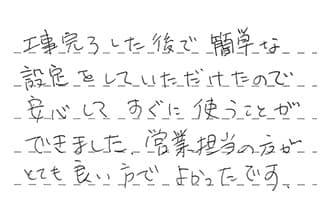 工事完了した後で簡単な
設定をしていただけたので
安心してすぐに使うことが
できました。営業担当の方が
とても良い方でよかったです。